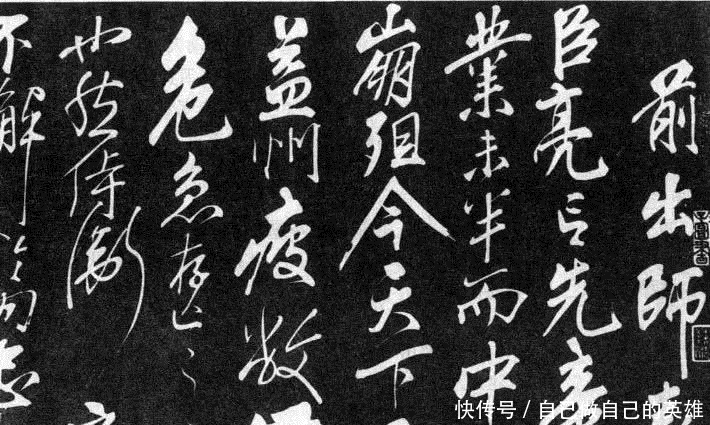 前出師表
臣亮言先帝
業未半而中
崩殂今天下
益州疲敝
危急存亡之
也然侍衛
不懈於内忠
快传号 / 自己做自己的英雄